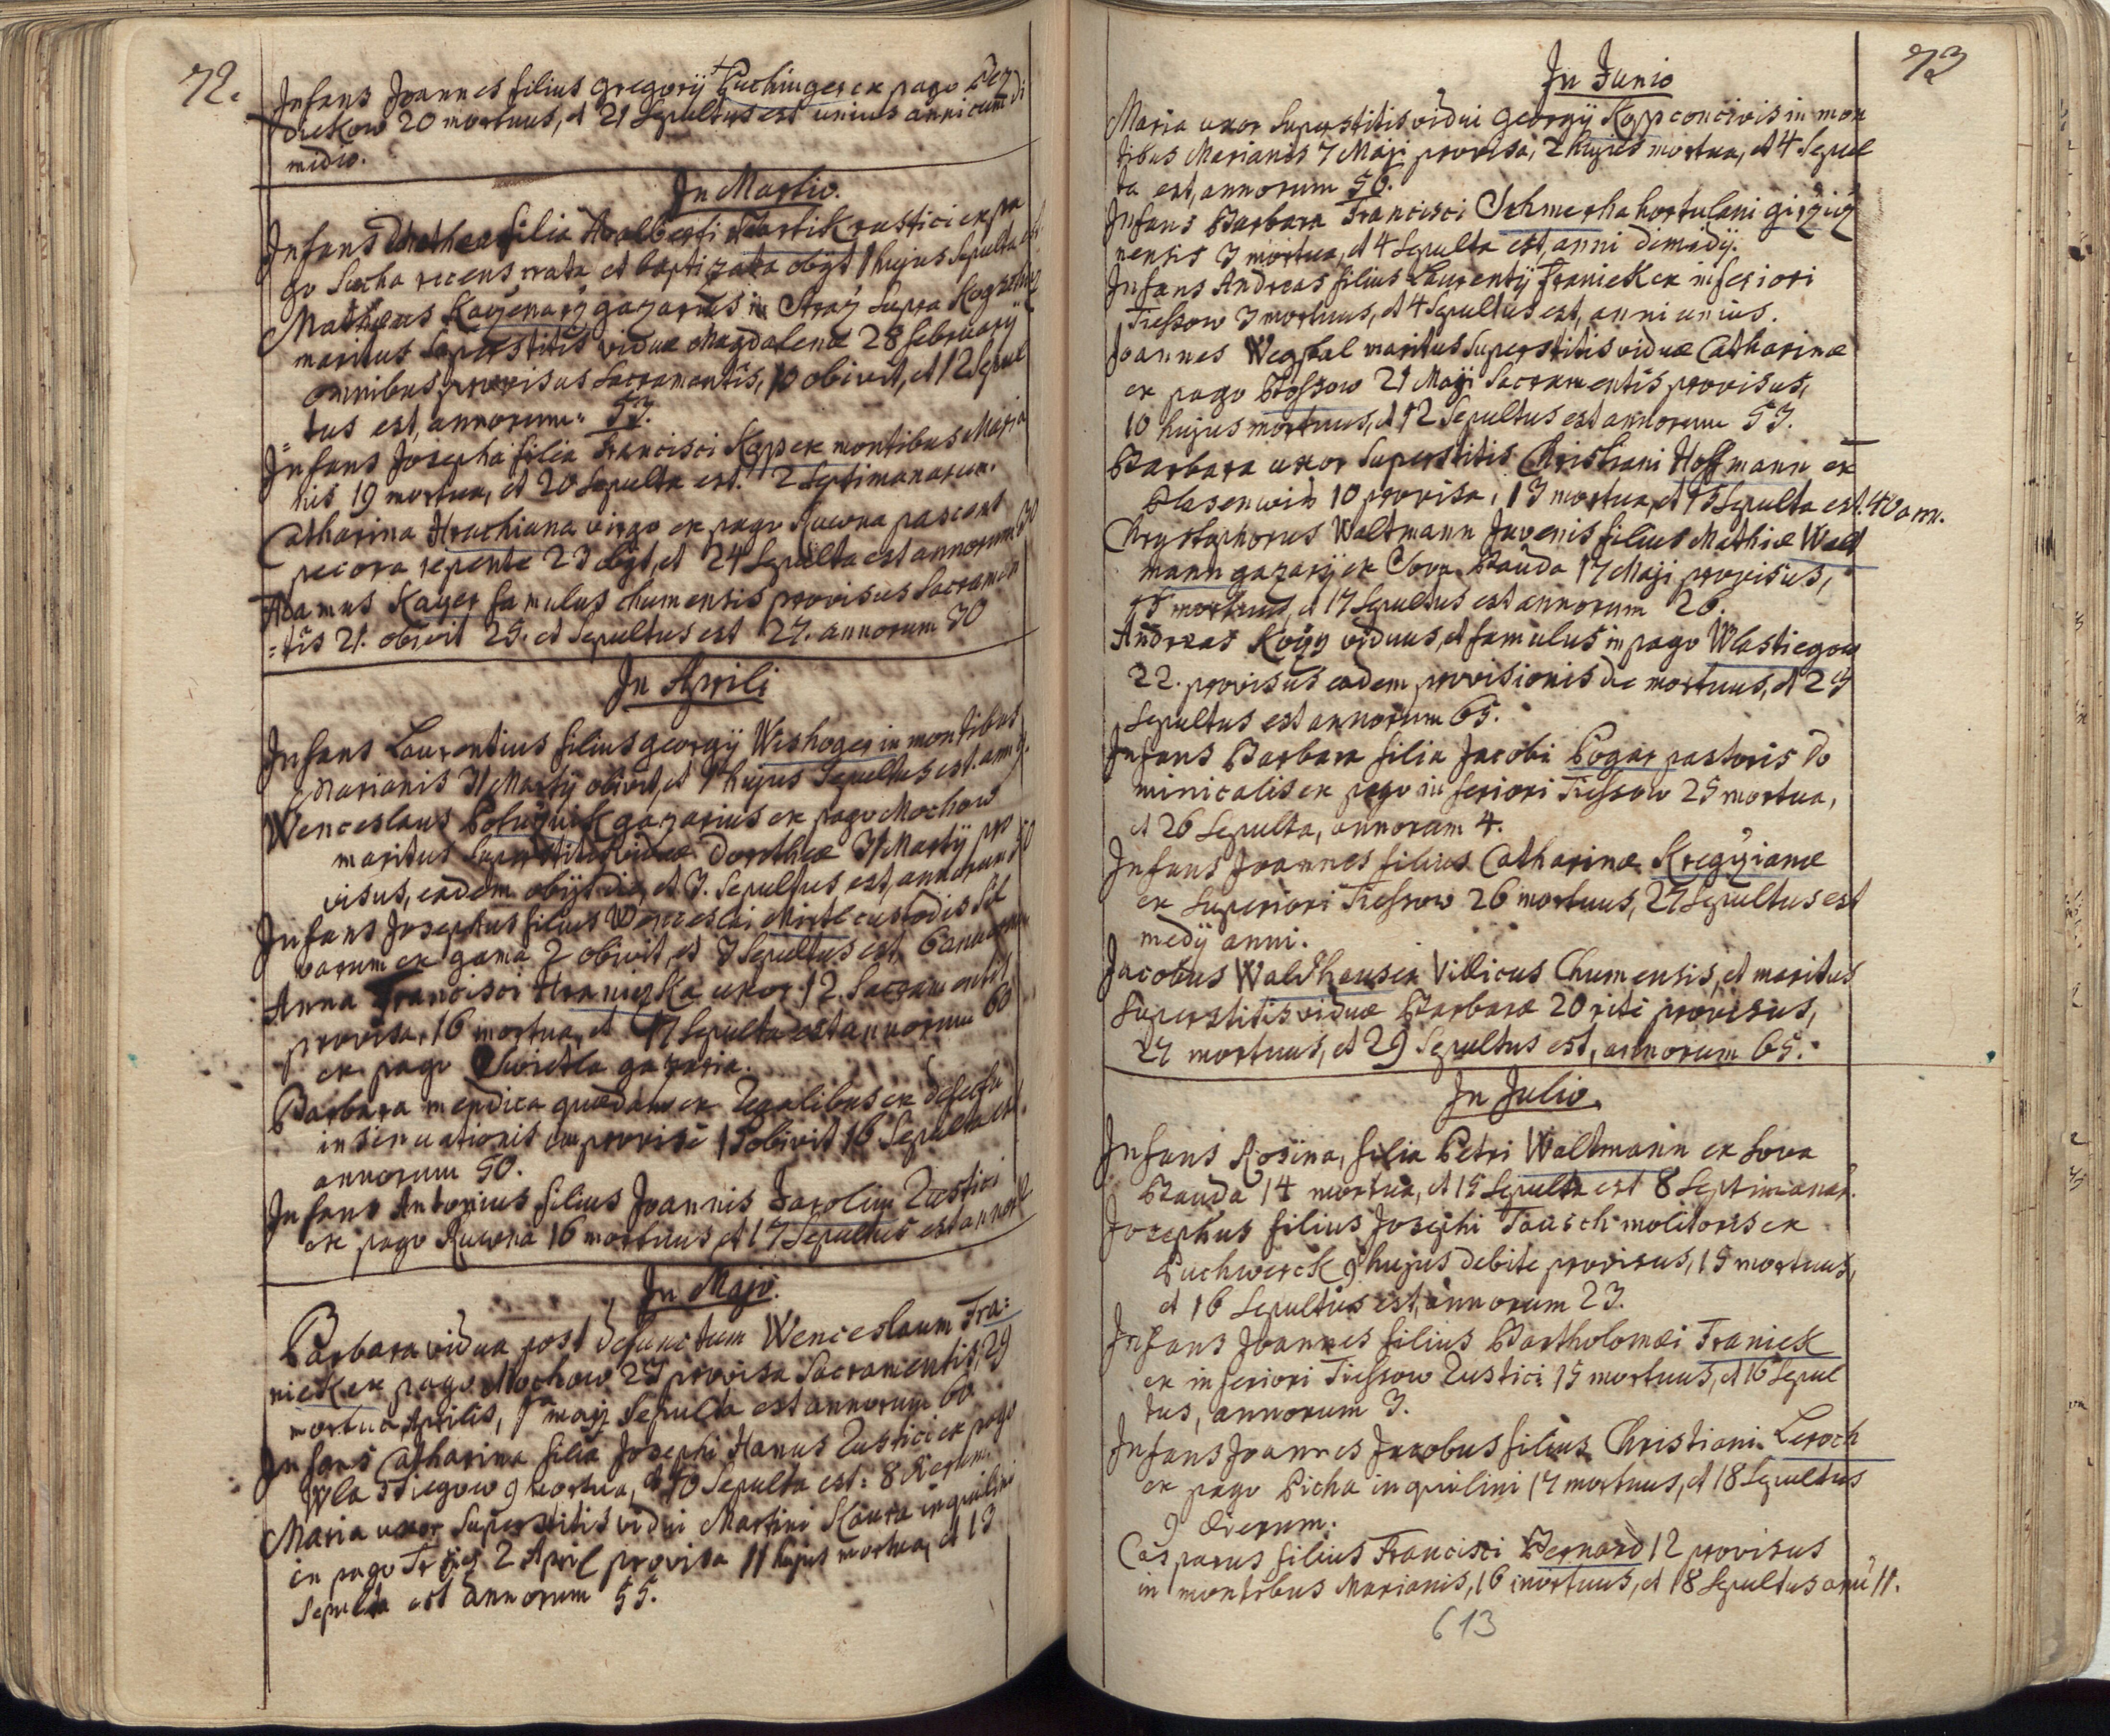 72.
Infans Joannes filius Gregorij Puchinger ex pago Dez
diekow 20 mortuus, et 21 Sepultus est unius anni cum di
midio.
In Martio.
Infans Dorothea filia Adalberti Bartik rustici ex pa
go Sucha recens nata et baptizata obijt 1 hujus Sepulta est
Mathaeus gazarius in Straż Supra
maritus Superstitis viduae Magdalenae 28 february
omnibus provisus Sacramentis, 10 obivit, et 12 Sepul
tus est, annorum 53.
Infans Josepha filia Francisci Kopp ex montibus Maria
nis 19 mortua, et 20 Sepulta est. 2 Septimanarum.
Catharina Hrachiana virgo ex pago Ruwna pascens
pecora repente 23 obijt, et 24 Sepulta est annorum 30
Adamus Kayer famulus chumensis provisus Sacramen
=tis 21. obivit 25. et Sepultus est 27. annorum 30
In Aprili
Infans Laurentius filius Georgij Weshoger in montibus
Marianis 31 Martij obivit, et 1 hujus Sepultus est.
Wenceslaus gazarius ex pago Mochow
maritus Superstitis viduae Dorotheae 31 Martij pro
visus, eadem obijt die, et 3. Sepultus est, annorum 50
Infans Josephus filius Wenceslai Mirtl custodis Sil
varum ex gama 2 obivit, et 3 Sepultus est, 6 annorum
Anna Francisci Hraniczka uxor 12. Sacramentis
provisa, 16 mortua, et 17 Sepulta est annorum 60
ex pago Swietla gazaria.
Barbara mendica quaedam ex Regalibus ex defectu
insinuationis improvisa 15 obivit 16 Sepulta est
annorum 50.
Infans Antonius filius Joannis Jarolim Rustici
ex pago Ruwna 16 mortuus et 17 Sepultus est annor
In Majo.
Barbara vidua post defunctum Wenceslaum Fra=
niek ex pago Mochow 27 provisa Sacramentis, 29
mortua Aprilis, 1ma maji Sepulta est annorum 60
Infans Catharina filia Josephi Hanus Rustici ex pago
Wlastiegow 9 mortua, et 10 Sepulta est: 8 dierum.
Maria uxor Superstitis vidui Martini Kaura inquilini
in pago 2 April provisa 11 hujus mortua, et 13
Sepulta est annorum 55.
73
In Junio
Maria uxor Superstitis vidui Georgij Kopp concivis in mon
tibus Marianis 7 Maji provisa, 2 hujus mortua, et 4 Sepul
ta est, annorum 56.
Infans Barbara Francisci Schmerha hortulani girziz
nensis 3 mortua, et 4 Sepulta est, anni dimidij.
Infans Andreas filius Laurentij Franiek ex inferiori
Tiessow 3 mortuus, et 4 Sepultus est, anni unius.
Joannes Wegskal maritus Superstitis viduae Catharinae
ex pago Stossow 21 Maji Sacramentis provisus,
10 hujus mortuus, et 12 Sepultus est annorum 53.
Barbara uxor Superstitis Christiani Hoffmann ex
Plasenwih 10 provisa, 13 mortua, et 15 Sepulta est. 40 ann.
Chrystophorus Waltmann Juvenis filius Mathiae Walt
mann gazarij ex Sova Bauda 17 Maji provisus,
15 mortuus, et 17 Sepultus est annorum 26.
Andreas viduus, et famulus in pago Wlastiegow
22. provisus eadem provisionis die mortuus, et 25
Sepultus est annorum 65.
Infans Barbara filia Jacobi Pogar pastoris do
minicalis ex pago inferiori Tiessow 25 mortua,
et 26 Sepulta, annorum 4.
Infans Joannes filius Catharinae Kregzianae
ex Superiori Tiessow 26 mortuus, 27 Sepultus est
medij anni.
Jacobus Waldhauser Villicus Chumensis, et maritus
Superstitis viduae Barbarae 20 riti provisus,
27 mortuus, et 29 Sepultus est, annorum 65.
In Julio.
Infans Rosina, filia Petri Waltmann ex Sova
Bauda 14 mortua, et 15 Sepulta est 8 Septimanar.
Josephus filius Josephi Tausch molitoris ex
Puchwerck 9 hujus debite provisus, 15 mortuus,
et 16 Sepultus est, annorum 23.
Infans Joannes filius Bartholomaei Franiek
ex inferiori Tiessow Rustici 15 mortuus, et 16 Sepul
tus, annorum 3.
Infans Joannes Jacobus filius Christiani Leroch
ex pago Picha inquilini 17 mortuus, et 18 Sepultus
9 dierum.
Casparus filius Francisci Bernard 12 provisus
in montibus Marianis, 16 mortuus, et 18 Sepultus anū 11.
613